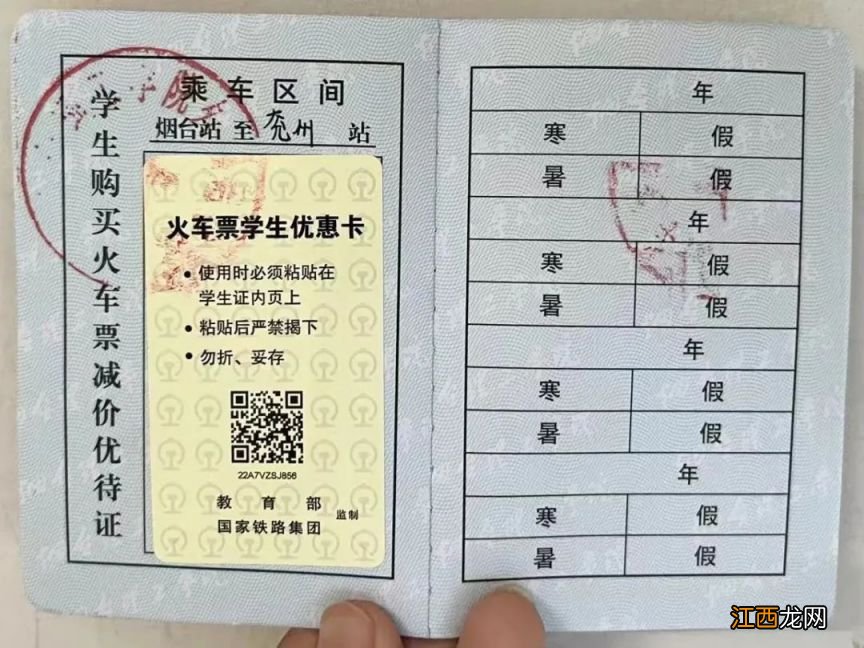 学生购买火车票减价优待证
乘车区间
烟台站 至 兖州 站
火车票学生优惠卡
• 使用时必须粘贴在
学生证内页上
• 粘贴后严禁揭下
• 勿折、妥存
22A7VZSJ856
教育部
国家铁路集团
监制
年
寒 假
暑 假
年
寒 假
暑 假
年
寒 假
暑 假
年
寒 假
暑 假
江西龙网